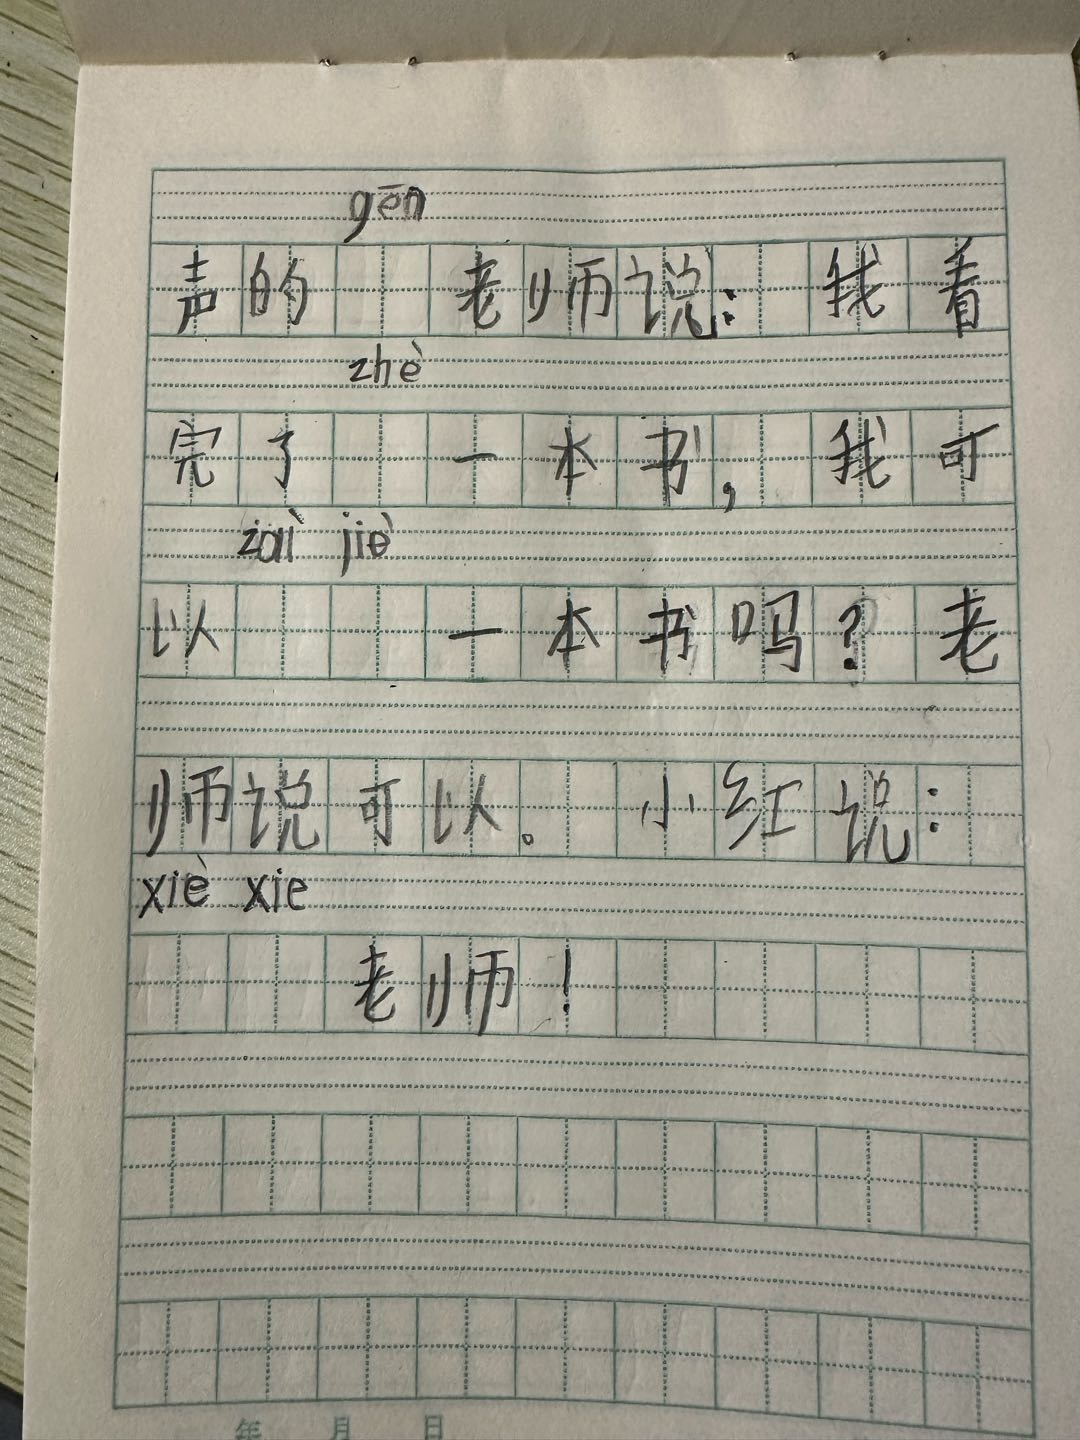 gēn
声的 老师说：我看
zhè
完了 一本书，我可
zài jiè
以 一本书吗？老
师说可以。小红说：
xiè xie
老师！
年 月 日